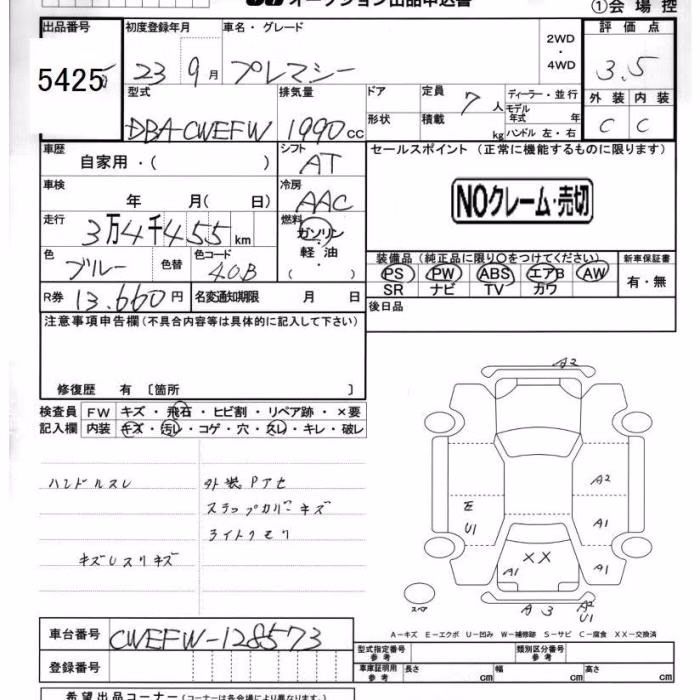 オークション出品申込書
①会場控
出品番号 初度登録年月 車名・グレード 2WD・4WD 評価点
5425 23 9月 プレマシー 3.5
型式 排気量 ドア 定員 7人 ディーラー・並行 外装 内装
モデル年式 年
DBA-CWEFW 1990cc 形状 積載 kg ハンドル 左・右 C C
車歴 シフト セールスポイント (正常に機能するものに限ります)
自家用・( ) AT
車検 年 月( 日) 冷房 AAC
NOクレーム・売切
走行 3万4千455km 燃料 ガソリン
軽油
( )
色 ブルー 色替 色コード 40B
装備品 (純正品に限り○をつけてください) 新車保証書
PS PW ABS エアB AW 有・無
SR ナビ TV カワ
R券 13,660円 名変通知期限 月 日
後日品
注意事項申告欄(不具合内容等は具体的に記入して下さい)
修復歴 有 〔箇所 〕
検査員 FW キズ・飛石・ヒビ割・リペア跡・×要
記入欄 内装 キズ・汚レ・コゲ・穴・スレ・キレ・破レ
ハンドルスレ 外装Pアセ
ステップカバーキズ
ライトクモリ
キズUスリキズ
A2
A2
E
U1
A1
XX
A1
A1
スペア
A3
A2
U1
A-キズ E-エクボ U-凹み W-補修跡 S-サビ C-腐食 XX-交換済
車台番号 CWEFW-128573
型式指定番号 参考 類別区分番号 参考
登録番号
車庫証明用 参考 長さ cm 幅 cm 高さ cm
希望出品コーナー(コーナーは各会場により異なります)